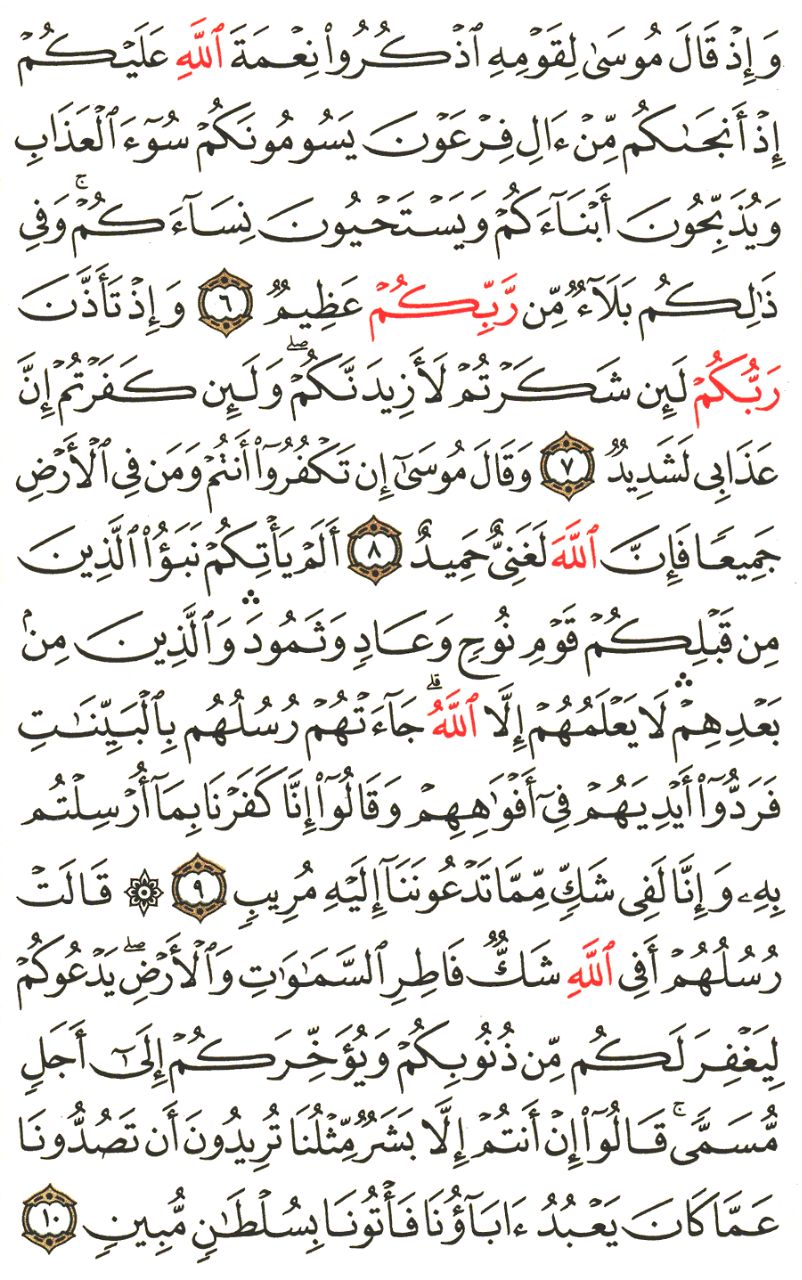 وَإِذْ قَالَ مُوسَىٰ لِقَوْمِهِ ٱذْكُرُوا۟ نِعْمَةَ ٱللَّهِ عَلَيْكُمْ
إِذْ أَنجَىٰكُم مِّنْ ءَالِ فِرْعَوْنَ يَسُومُونَكُمْ سُوٓءَ ٱلْعَذَابِ
وَيُذَبِّحُونَ أَبْنَآءَكُمْ وَيَسْتَحْيُونَ نِسَآءَكُمْ ۚ وَفِى
ذَٰلِكُم بَلَآءٌ مِّن رَّبِّكُمْ عَظِيمٌ ٦ وَإِذْ تَأَذَّنَ
رَبُّكُمْ لَئِن شَكَرْتُمْ لَأَزِيدَنَّكُمْ ۖ وَلَئِن كَفَرْتُمْ إِنَّ
عَذَابِى لَشَدِيدٌ ٧ وَقَالَ مُوسَىٰٓ إِن تَكْفُرُوٓا۟ أَنتُمْ وَمَن فِى ٱلْأَرْضِ
جَمِيعًا فَإِنَّ ٱللَّهَ لَغَنِىٌّ حَمِيدٌ ٨ أَلَمْ يَأْتِكُمْ نَبَؤُا۟ ٱلَّذِينَ
مِن قَبْلِكُمْ قَوْمِ نُوحٍ وَعَادٍ وَثَمُودَ ۛ وَٱلَّذِينَ مِنۢ
بَعْدِهِمْ ۛ لَا يَعْلَمُهُمْ إِلَّا ٱللَّهُ ۗ جَآءَتْهُمْ رُسُلُهُم بِٱلْبَيِّنَٰتِ
فَرَدُّوٓا۟ أَيْدِيَهُمْ فِىٓ أَفْوَٰهِهِمْ وَقَالُوٓا۟ إِنَّا كَفَرْنَا بِمَآ أُرْسِلْتُم
بِهِۦ وَإِنَّا لَفِى شَكٍّ مِّمَّا تَدْعُونَنَآ إِلَيْهِ مُرِيبٍ ٩ ۞ قَالَتْ
رُسُلُهُمْ أَفِى ٱللَّهِ شَكٌّ فَاطِرِ ٱلسَّمَٰوَٰتِ وَٱلْأَرْضِ ۖ يَدْعُوكُمْ
لِيَغْفِرَ لَكُم مِّن ذُنُوبِكُمْ وَيُؤَخِّرَكُمْ إِلَىٰٓ أَجَلٍ
مُّسَمًّى ۚ قَالُوٓا۟ إِنْ أَنتُمْ إِلَّا بَشَرٌ مِّثْلُنَا تُرِيدُونَ أَن تَصُدُّونَا
عَمَّا كَانَ يَعْبُدُ ءَابَآؤُنَا فَأْتُونَا بِسُلْطَٰنٍ مُّبِينٍ ١٠